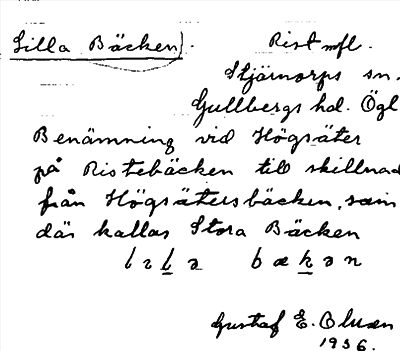 Lilla Bäcken. Rist mfl.
Stjärnorps sn.
Gullbergs hd. Ögl
Benämning vid Högsäter
på Ristebäcken till skillnad
från Högsätersbäcken, som
där kallas Stora Bäcken
Gustaf E. Olsson
1936.